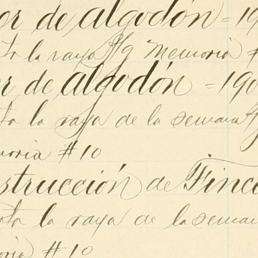 or de algodón = 190
ta la raya S/g Memoria #
or de algodón = 190
ta la raya de la semana S/
moria # 10
strucción de Finca
ta la raya de la seman
moria # 10